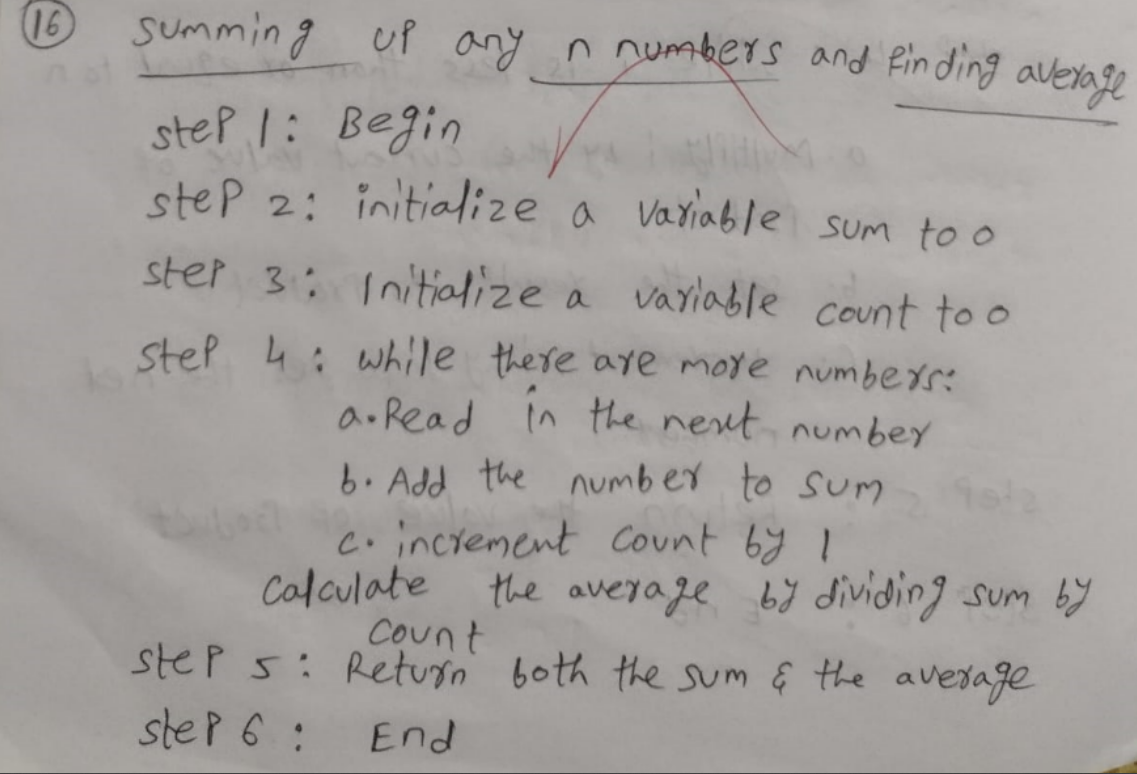 16 summing up any n numbers and finding average
step 1: Begin
step 2: initialize a variable sum to 0
step 3: Initialize a variable count to 0
step 4: while there are more numbers:
a. Read in the next number
b. Add the number to sum
c. increment count by 1
Calculate the average by dividing sum by
count
step 5: Return both the sum & the average
step 6: End